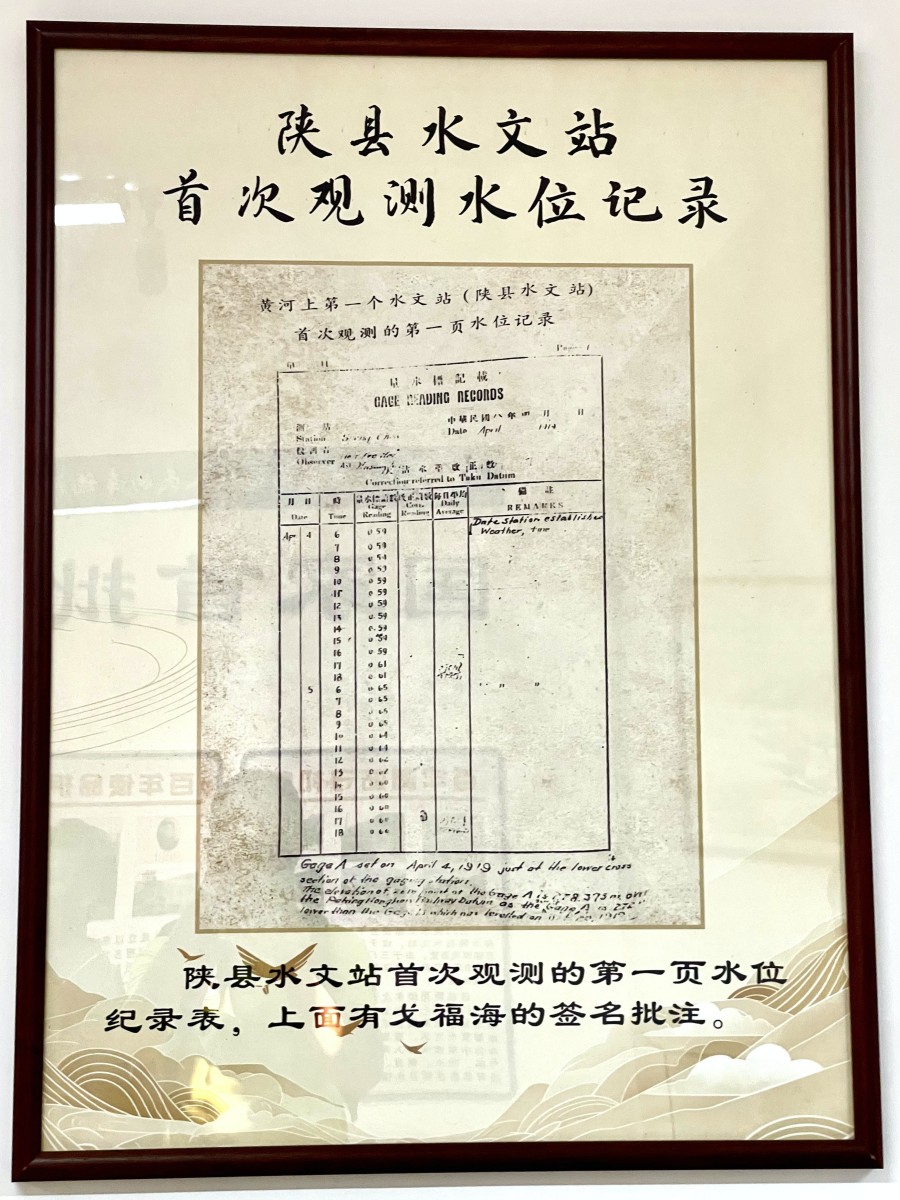 陕县水文站
首次观测水位记录
黄河上第一个水文站(陕县水文站)
首次观测的第一页水位记录
量水標記載
GAGE READING RECORDS
測站 中華民國八年四月 日
Station Date April 1919
Observer
Correction referred to Taku Datum
月 日 時 量水標讀數 改正讀數 每日平均 備註
Date Time Gage Reading Corr. Reading Daily Average REMARKS
Apr 4 6 0.59 Date station established
7 0.59 Weather,
8 0.59
9 0.59
10 0.59
11 0.59
12 0.59
13 0.59
14 0.59
15 0.59
16 0.59
17 0.61
18 0.61
5 6 0.65 " " "
7 0.65
8 0.65
9 0.65
10 0.64
11 0.64
12 0.62
13
14 0.60
15 0.60
16 0.60
17 0.60
18
Gage A set on April 4, 1919 just at the lower cross
section of the gaging station.
The elevation of zero point of the Gage A is 278.375 m. over
the Peking Hankow Railway Datum as the Gage A is
lower than the Gage B which was levelled on
陕县水文站首次观测的第一页水位
纪录表，上面有戈福海的签名批注。